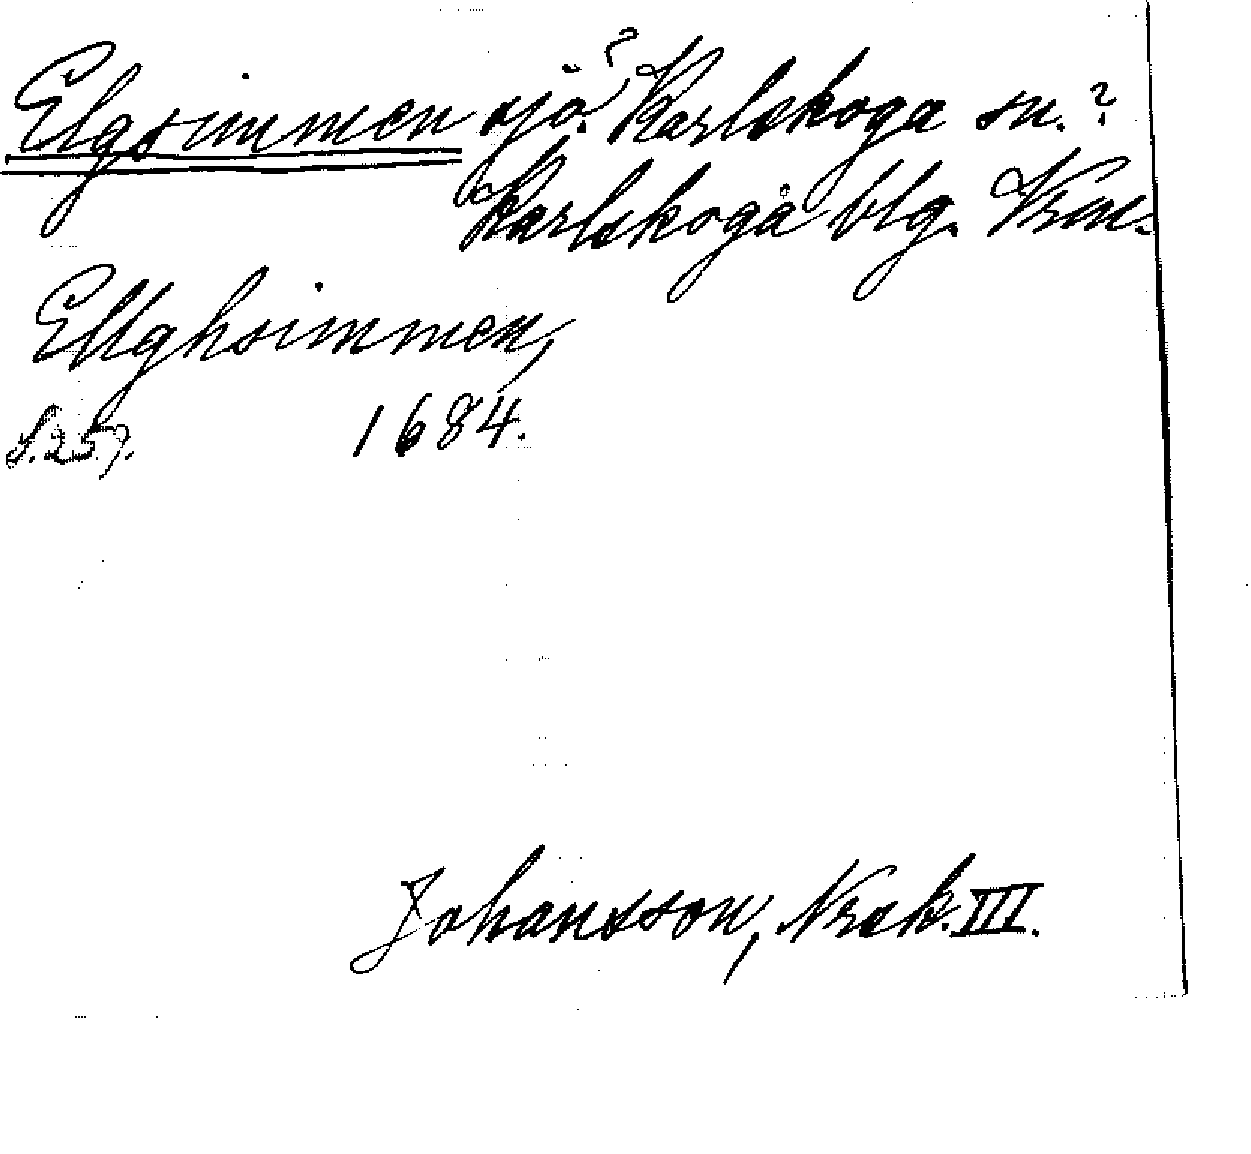 Elgsimmen sjö? Karlskoga sn.?
Karlskoga blg. Vrml.
Ellghsimmen,
S. 257. 1684.
Johansson, Nrak. III.